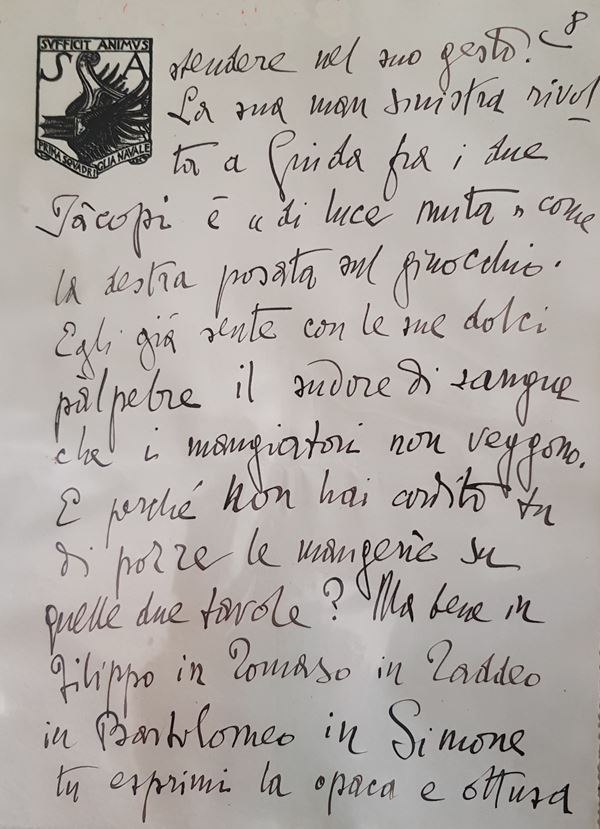 8
SVFFICIT ANIMVS
S A
PRIMA SQVADRIGLIA NAVALE
stendere nel suo gesto.
La sua man sinistra rivol
ta a Giuda fra i due
Jàcopi è « di luce muta » come
la destra posata sul ginocchio.
Egli già sente con le sue dolci
pàlpebre il sudore di sangue
che i mangiatori non veggono.
E perché non hai ardito tu
di porre le mangerìe su
quelle due tavole? Ma bene in
Filippo in Tomaso in Taddeo
in Bartolomeo in Simone
tu esprimi la opaca e ottusa